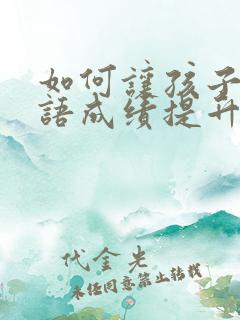 如何讓孩子
語成績提升
代金光
未經同意禁止轉載